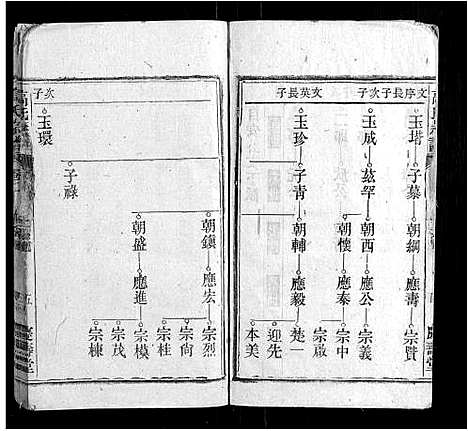 文序長子 次子 文英長子
玉塔 子慕 朝綱 應濤 宗賢
玉成 茲罕 朝西 應公 宗義
朝懷 應泰 宗中
宗啟
玉珍 子青 朝輔 應毅 楚一
迎先
本美
慶壽堂
次子
玉環 子祿
朝鎮 應宏 宗烈
宗尚
宗桂
朝盛 應進 宗模
宗茂
宗棟
慶壽堂